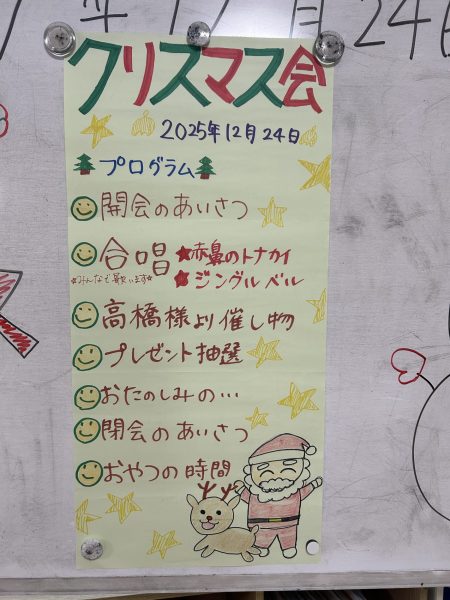 年12月24日
クリスマス会
2025年12月24日
プログラム
開会のあいさつ
合唱 ★赤鼻のトナカイ
★みんなで歌います★ ★ジングルベル
高橋様より催し物
プレゼント抽選
おたのしみの…
閉会のあいさつ
おやつの時間